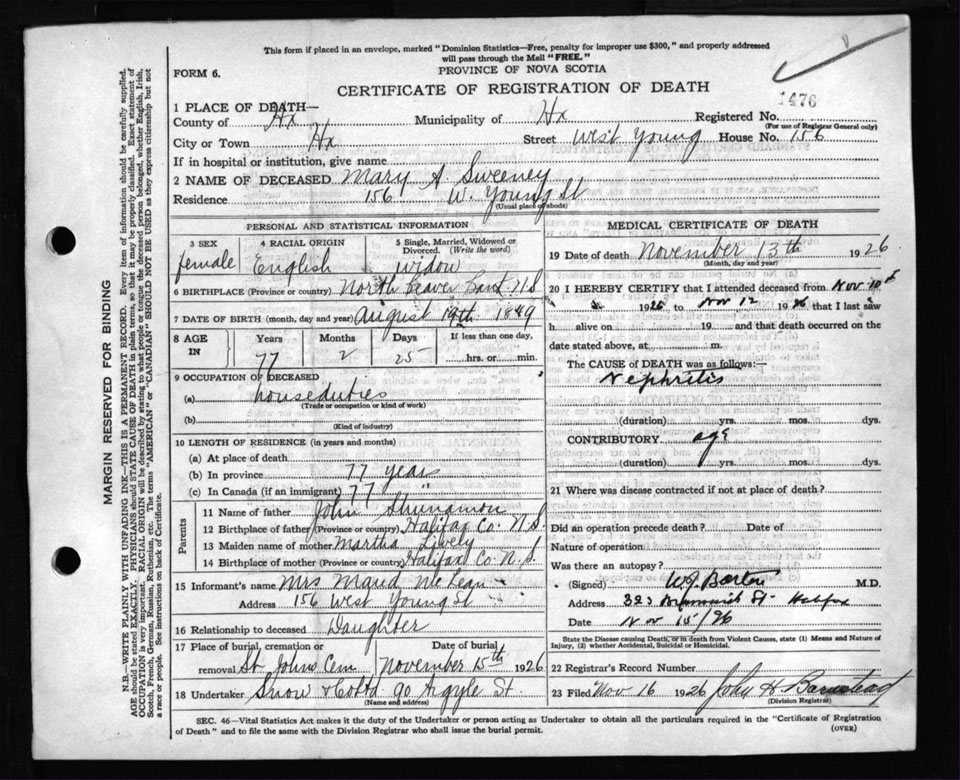 This form if placed in an envelope, marked "Dominion Statistics—Free, penalty for improper use $300," and properly addressed
will pass through the Mail "FREE."
FORM 6.
PROVINCE OF NOVA SCOTIA
CERTIFICATE OF REGISTRATION OF DEATH
1476
1 PLACE OF DEATH—
County of Hx Municipality of Hx Registered No.
(For use of Registrar General only)
City or Town Hx Street West Young House No. 156
If in hospital or institution, give name
2 NAME OF DECEASED Mary A. Sweeney
Residence 156 W. Young St
(Usual place of abode)
PERSONAL AND STATISTICAL INFORMATION
3 SEX 4 RACIAL ORIGIN 5 Single, Married, Widowed or Divorced. (Write the word)
female English widow
6 BIRTHPLACE (Province or country) North Beaver Bank N.S
7 DATE OF BIRTH (month, day and year) August 19th 1849
8 AGE IN Years Months Days If less than one day,
77 2 25 hrs. or min.
9 OCCUPATION OF DECEASED
(a) houseduties
(Trade or occupation or kind of work)
(b)
(Kind of industry)
10 LENGTH OF RESIDENCE (in years and months)
(a) At place of death
(b) In province 77 years
(c) In Canada (if an immigrant) 77 "
Parents
11 Name of father John
12 Birthplace of father (Province or country) Halifax Co. N.S
13 Maiden name of mother Martha Lively
14 Birthplace of mother (Province or country) Halifax Co N.S.
15 Informant's name Mrs Maud McLean
Address 156 West Young St
16 Relationship to deceased Daughter
17 Place of burial, cremation or removal St Johns Cem. Date of burial November 15th 1926
18 Undertaker Snow & Co Ltd 90 Argyle St.
(Name and address)
MEDICAL CERTIFICATE OF DEATH
19 Date of death November 13th 1926
(Month, day and year)
20 I HEREBY CERTIFY that I attended deceased from Nov 10th
1926 to Nov 12 1926 that I last saw
h alive on 19 and that death occurred on the
date stated above, at m.
The CAUSE OF DEATH was as follows:—
Nephritis
(duration) yrs. mos. dys.
CONTRIBUTORY age
(duration) yrs. mos. dys.
21 Where was disease contracted if not at place of death?
Did an operation precede death? Date of
Nature of operation
Was there an autopsy?
(Signed) W.J. Barton M.D.
Address 323 Brunswick St. Halifax
Date Nov 15/26
State the Disease causing Death, or in death from Violent Causes, state (1) Means and Nature of
Injury, (2) whether Accidental, Suicidal or Homicidal.
22 Registrar's Record Number
23 Filed Nov 16 1926 John H Barnstead
(Division Registrar)
SEC. 46—Vital Statistics Act makes it the duty of the Undertaker or person acting as Undertaker to obtain all the particulars required in the "Certificate of Registration
of Death" and to file the same with the Division Registrar who shall issue the burial permit.
(OVER)
MARGIN RESERVED FOR BINDING
N.B.—WRITE PLAINLY WITH UNFADING INK—THIS IS A PERMANENT RECORD. Every item of information should be carefully supplied.
AGE should be stated EXACTLY. PHYSICIANS should STATE CAUSE OF DEATH in plain terms, so that it may be properly classified. Exact statement of
OCCUPATION is very important. RACIAL ORIGIN will be described by stating to what people or tongue the deceased person belonged, whether English, Irish,
Scotch, French, German, Russian, Ruthenian, etc. The terms "AMERICAN" or "CANADIAN" SHOULD NOT BE USED as they express citizenship but not
a race or people. See instructions on back of Certificate.